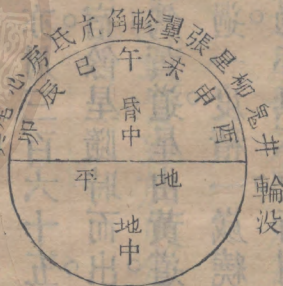 井鬼柳星張翼軫角亢氐房心尾
輪没
酉申未午巳辰卯
昏中
地平
地中